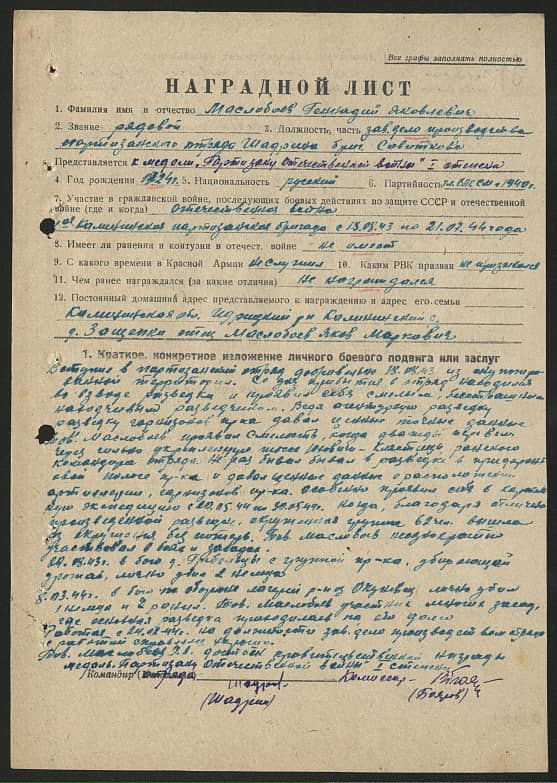 Все графы заполнять полностью
НАГРАДНОЙ ЛИСТ
1. Фамилия имя и отчество Маслобоев Геннадий Яковлевич
2. Звание рядовой 3. Должность, часть зав. дело производства
партизанского отряда Шадрина бриг.
Представляется к медали "Партизану Отечественной войны" I степени
4. Год рождения 1924г. 5. Национальность русский 6. Партийность чл. ВЛКСМ с 1940г.
7. Участие в гражданской войне, последующих боевых действиях по защите СССР и отечественной
войне (где и когда) отечественная война
Калининская партизанская бригада с 18.08.43 по 21.07.44 года
8. Имеет ли ранения и контузии в отечест. войне не имеет
9. С какого времени в Красной Армии не служил 10. Каким РВК призван не призывался
11. Чем ранее награждался (за какие отличия) Не награждался
12. Постоянный домашний адрес представляемого к награждению и адрес его семьи
Калининская обл. Идрицкий р-н Калининский с,
д. Защепки отец Маслобоев Яков Маркович
1. Краткое, конкретное изложение личного боевого подвига или заслуг
Вступил в партизанский отряд добровольно 18.08.43 из оккупиро-
ванной территории. Со дня прибытия в отряд находился
во взводе разведки и проявил себя смелым, бесстрашным
находчивым разведчиком. Ведя агентурную разведку
разведку гарнизонов пр-ка давал ценные точные данные
Тов. Маслобоев проявил смелость, когда дважды перевёз
через сильно укрепленную шоссе раненого
командира отряда. Не раз бывал в разведке в придорож-
ной полосе пр-ка и давал ценные данные о расположении
артиллерии, гарнизонов пр-ка. Особенно проявил себя в
экспедицию с 20.05.44 по 30.05.44г. Когда, благодаря отлично
произведенной разведки, окруженная группа 62 чел. вышла
из окружения без потерь. Тов. Маслобоев неоднократно
участвовал в боях и засадах.
08.43г. в бою д. с группой пр-ка, убирающей
урожай, лично убил 2 немца
8.03.44г. в бою по обороне лагеря р-на лично убил
1 немца и 2 ранил. Тов. Маслобоев участник многих засад,
где основная разведка приходилась на его долю
Работая с на должности зав. дело производством отряда
с работой справлялся хорошо.
Тов. Маслобоев Г.Я. достоин правительственной награды
медаль "Партизану Отечественной войны" I степени
Командир отряда Комиссар
(Шадрин)